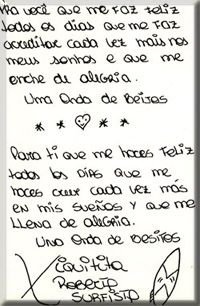 Pra você que me faz feliz
todos os dias que me faz
acreditar cada vez mais nos
meus sonhos e que me
enche de alegria.
Uma Onda de Beijos
Para ti que me haces feliz
todos los días que me
haces creer cada vez más
en mis sueños y que me
llena de alegria.
Una Onda de Besitos
Roberto
SURFISTA